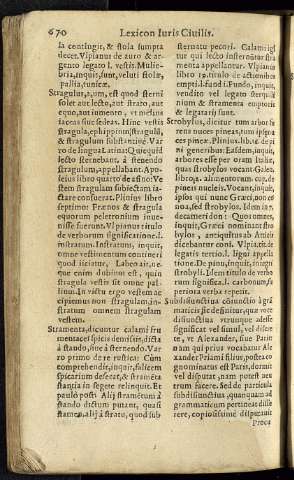 670 Lexicon Iuris Ciuilis.
la contingit, & stola sumpta
decet. Vlpianus de auro & ar-
gento legato l. vestis. Mulie-
bria, inquit, sunt, veluti stolæ,
pallia, tunicæ.
Stragulus, a, um, est quod sterni
solet aut lecto, aut strato, aut
equo, aut iumento, et mensa
faceas siue sedeas. Hinc vestis
stragula, ephippium stragulū,
& stragulum substantiuè Var-
ro de lingua Latina: Quicquid
lecto sternebant, à stenendo
stragulum, appellabant. Apo-
leius libro quarto de asino: Ve-
stem stragulam subiectam ia-
ctare consuerat. Plinius libro
septimo: Frænos & stragula
equorum peletronium inue-
nisse ferunt. Vlpianus titulo
de verborum significatione. l.
instratum. Instratum, inquit,
omne vestimentum contineri
quod iniicitur, Labeo ait, ne-
que enim dubium est, quin
stragula vestis sit omne pal-
lium. In victu ergo vestem ac-
cipiemus non stragulam, in-
stratum omnem stragulam
vestem.
Stramenta, dicuntur calami fru
mentacei spicis demissis, dicta
à stando, siue à sternendo. Var-
ro primo de re rustica: Cùm
comprehendit, inquit, falicem
spicarum desecat, & stramēta
stantia in segete relinquit. Et
paulò post: Alij stramētum à
stando dictum putant, quasi
stamen, alij à stratu, quod sub
sternatu pecori. Calami igi-
tur qui lecto insternūtur stra
menta appellantur. Vlpianus
libro 19. titulo de actionibus
empti. l. fundi. Fundo, inquit,
vendito vel legato sterquili-
nium & stramenta emptoris
& legatarij sunt.
Strobylus, dicitur tum arbor fe
rens nuces pineas, tum ipsæ nu-
ces pineæ. Plinius. libr. 16. de pi-
ni generibus: Easdem, inquit,
arbores esse per oram Italiæ,
quas strobylos vocant. Gale.
libro 2. alimentorum cap. de
pineis nucleis. Vocant, inquit,
ipsos qui nunc Græci, non co-
nos, sed strobylos. Idem in 7.
decameri don: Quos omnes,
inquit, Græci nominant stro
bylos, antiquitus ab Atticis
dicebantur coni. Vlpia. tit. de
legatis tertio. l. ligni appella
tione. De pinu, inquit, integri
strobyli. Idem titulo de verbo
rum significa. l. carbonum, si
periona verba repetit.
Subdisiunctiua coniunctio à grā
maticis sic definitur, quæ voce
disiunctiua vtrumque adesse
significat vel simul, vel disiun
cte, vt Alexander, siue Paris:
nam qui prius vocabatur Ale
xander Priami filius, postea co
gnominatus est Paris, dormit
vel disputat, nam potest au-
trum facere. Sed de particula
subdisiunctiua, quanquam ad
grammaticum pertineat disse
rere, copiosissimè disputauit
Procu